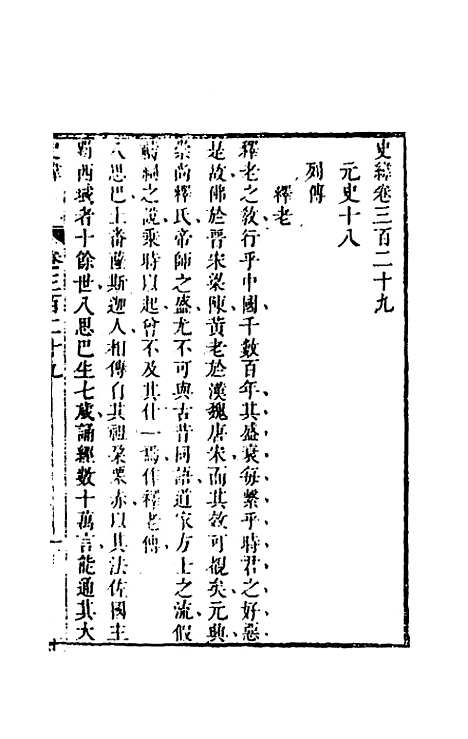 史緯卷三百二十九
元史十八
列傳
釋老
釋老之教行乎中國千數百年其盛衰每繫乎時君之好惡
是故佛於晉宋梁陳黃老於漢魏唐宋而其效可覩矣元興
崇尚釋氏帝師之盛尤不可與古昔同語道家方士之流假
禱祠之說乘時以起曾不及其什一焉作釋老傳
八思巴土番薩斯迦人相傳自其祖朶栗赤以其法佐國主
霸西域者十餘世八思巴生七歲誦經數十萬言能通其大
史緯 卷三百二十九